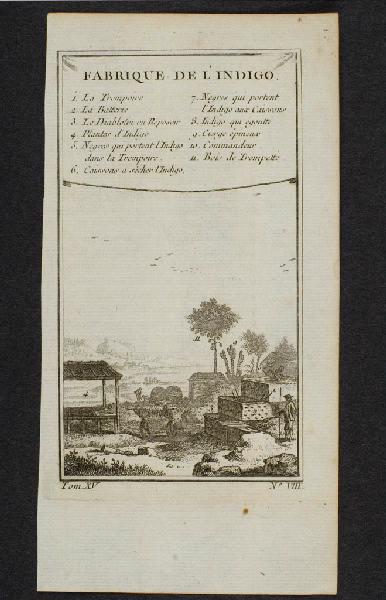 FABRIQUE DE L'INDIGO.
1. La Trempoire
2. La Batterie
3. Le Diablotin ou Reposoir
4. Plantes d'Indigo
5. Negres qui portent l'Indigo
dans la Trempoire.
6. Caissons a sécher l'Indigo.
7. Negres qui portent
l'Indigo aux Caissons
8. Indigo qui egoutte
9. Cierge épineux
10. Commandeur
11. Bois de Trompette
Tom. XV.
N.° VIII.